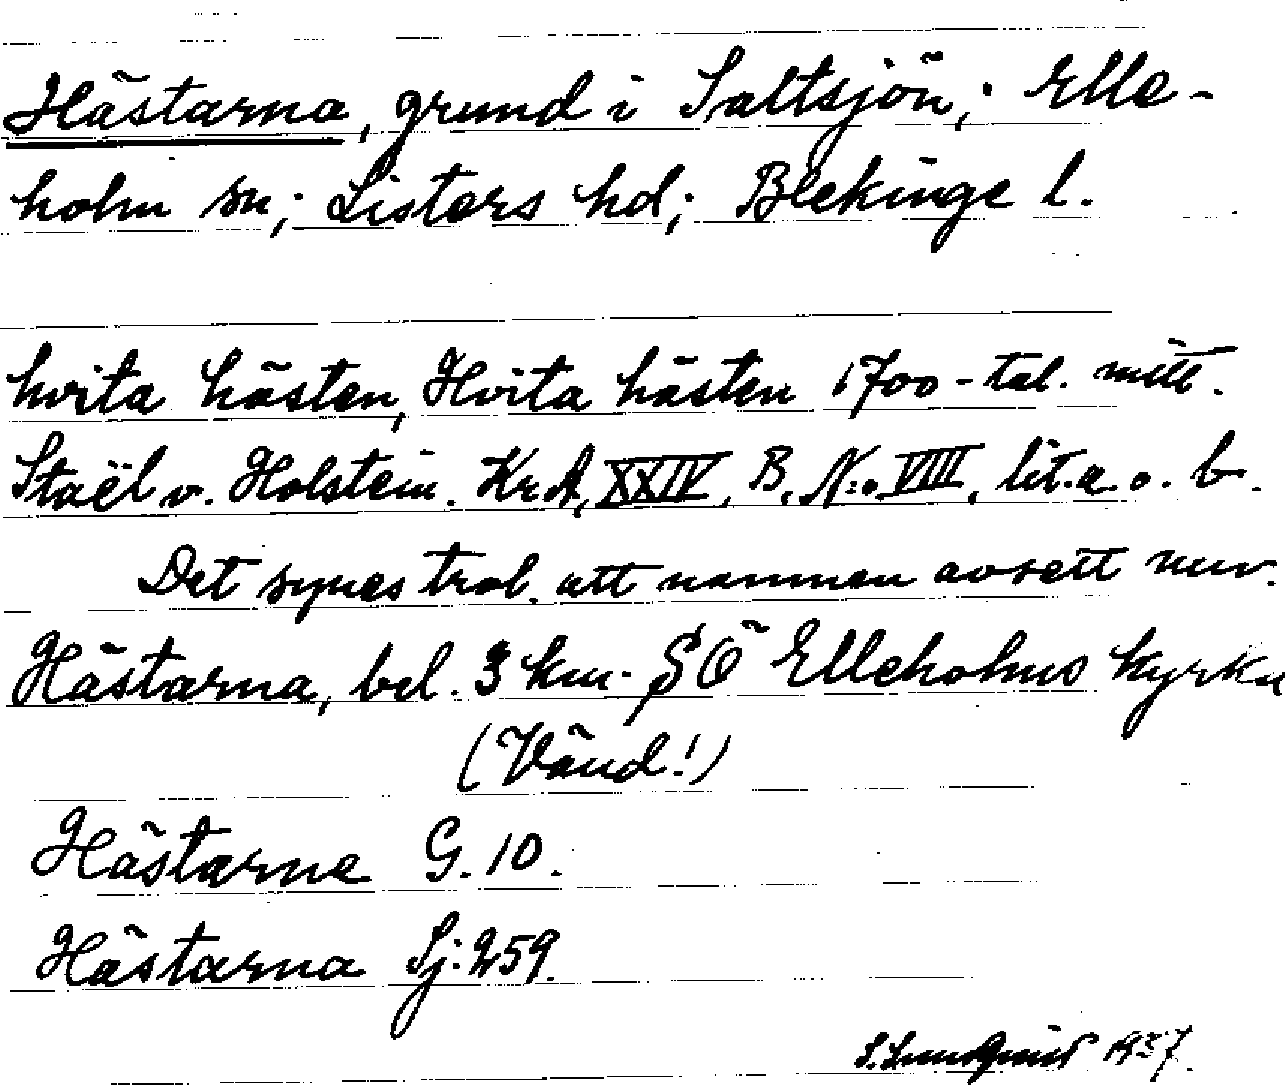 Hästarna, grund i Saltsjön; Elle-
holm sn; Listers hd; Blekinge l.
hvita hästen, Hvita hästen 1700-tal. mitt.
Staël v. Holstein. Kr A, XXIV, B, N:o VIII, lit. a. o. b.
Det synes trol. att namnen avsett nuv.
Hästarna, bel. 3 km. SÖ Elleholms kyrka
(Vänd!)
Hästarne G. 10.
Hästarna Sj: 259.
S. Lundquist 1937.